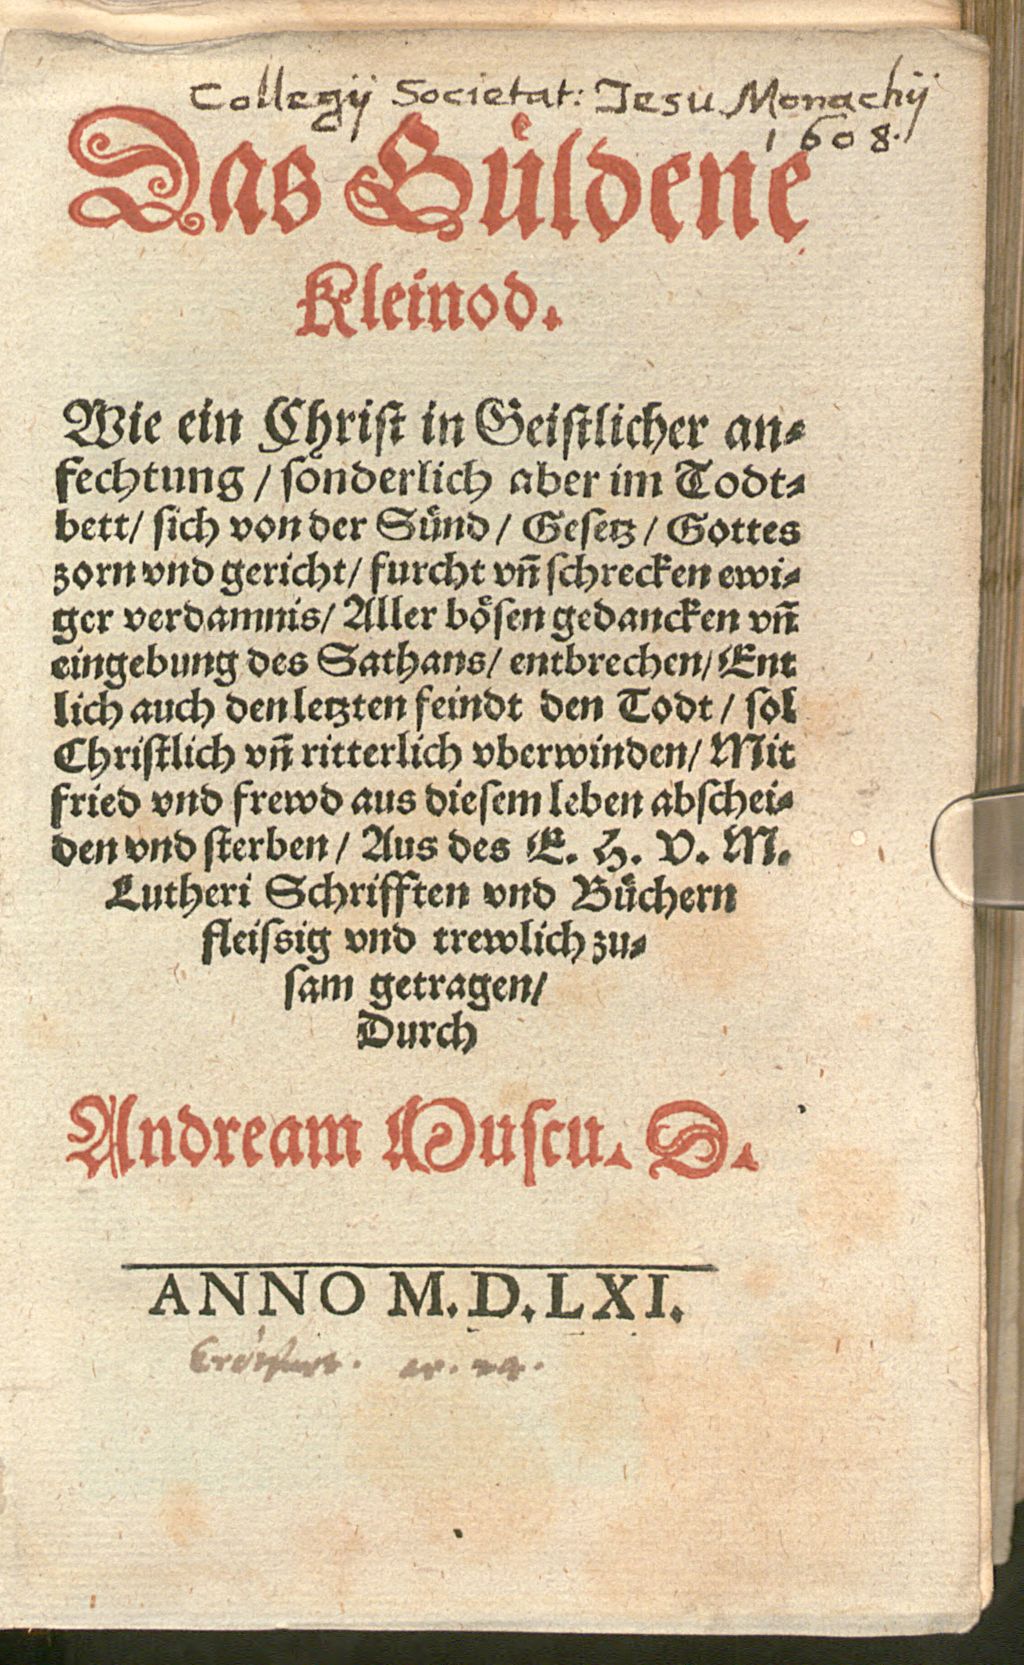 Collegij Societat: Jesu Monachij
1608.
Das Güldene
Kleinod.
Wie ein Christ in Geistlicher an⸗
fechtung / sonderlich aber im Todt⸗
bett / sich von der Sünd / Gesetz / Gottes
zorn vnd gericht / furcht vñ schrecken ewi⸗
ger verdamnis / Aller bösen gedancken vñ
eingebung des Sathans / entbrechen / Ent
lich auch den letzten feindt den Todt / sol
Christlich vñ ritterlich vberwinden / Mit
fried vnd frewd aus diesem leben abschei⸗
den vnd sterben / Aus des E. H. D. M.
Lutheri Schrifften vnd Büchern
fleissig vnd trewlich zu⸗
sam getragen /
Durch
Andream Muscu. D.
ANNO M.D.LXI.